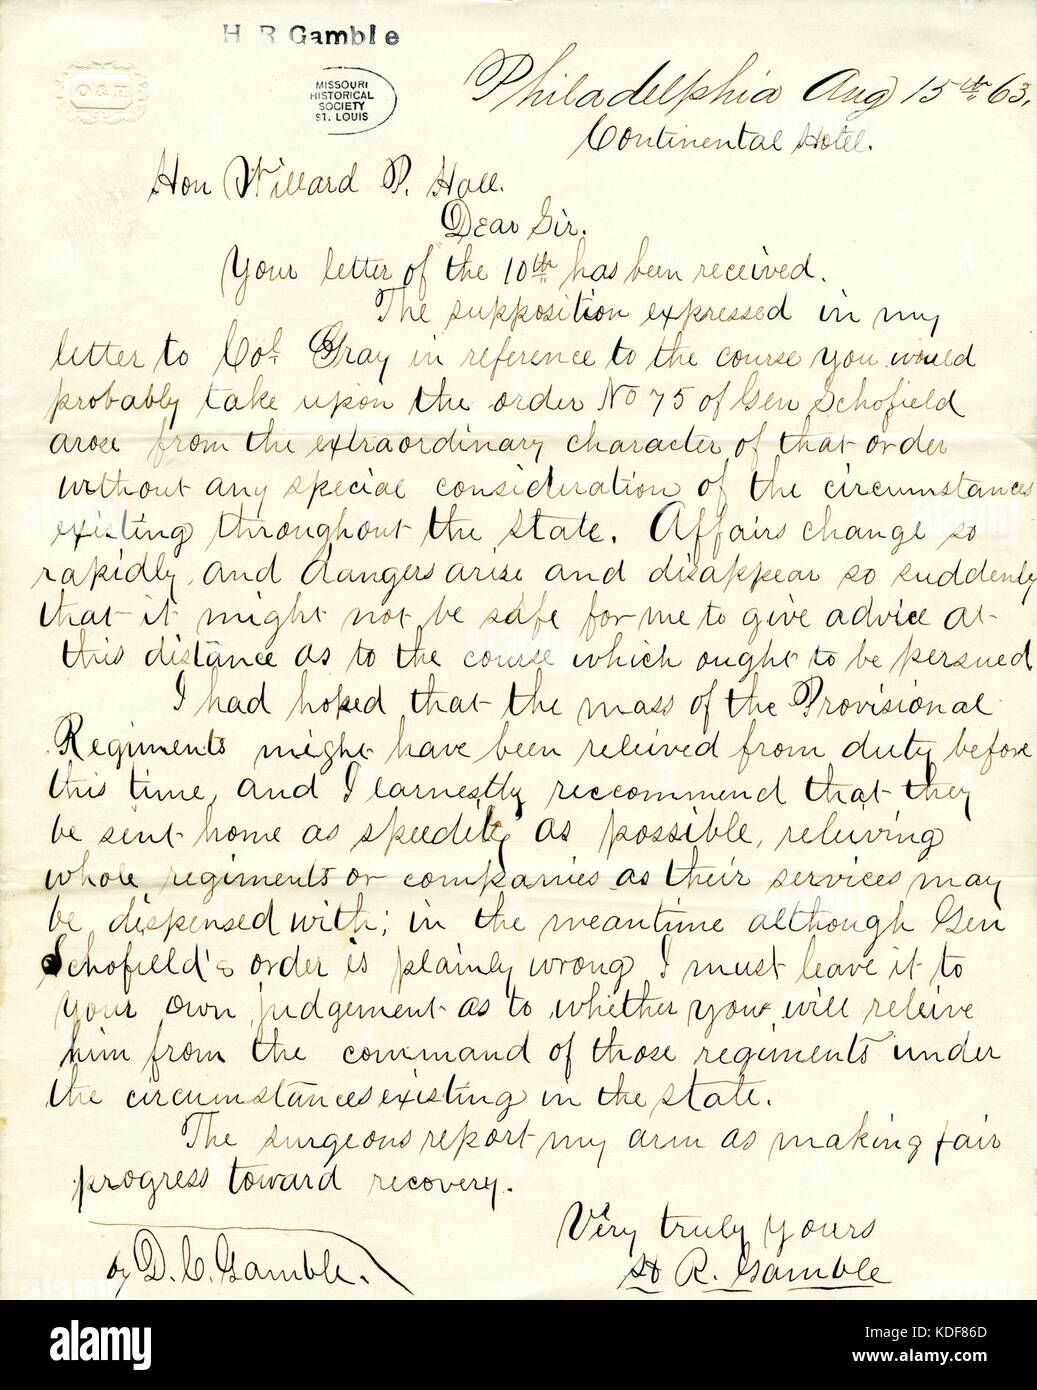 H R Gamble
O & H
MISSOURI
HISTORICAL
SOCIETY
ST. LOUIS
Philadelphia Aug 15th 63.
Continental Hotel.
Hon Willard P. Hall.
Dear Sir.
Your letter of the 10th has been received.
The supposition expressed in my
letter to Col. Gray in reference to the course you would
probably take upon the order No 75 of Gen Schofield
arose from the extraordinary character of that order
without any special consideration of the circumstances
existing throughout the State. Affairs change so
rapidly, and dangers arise and disappear so suddenly
that it might not be safe for me to give advice at
this distance as to the course which ought to be persued
I had hoped that the mass of the Provisional
Regiments might have been releived from duty before
this time, and I earnestly reccommend that they
be sent home as speedily as possible, releiving
whole regiments or companies as their services may
be dispensed with; in the meantime although Gen
Schofield's order is plainly wrong I must leave it to
your own judgement as to whether you will releive
him from the command of those regiments under
the circumstances existing in the state.
The surgeons report my arm as making fair
progress toward recovery.
Very truly yours
H R. Gamble
by D. C. Gamble.
alamy
Image ID: KDF86D
www.alamy.com